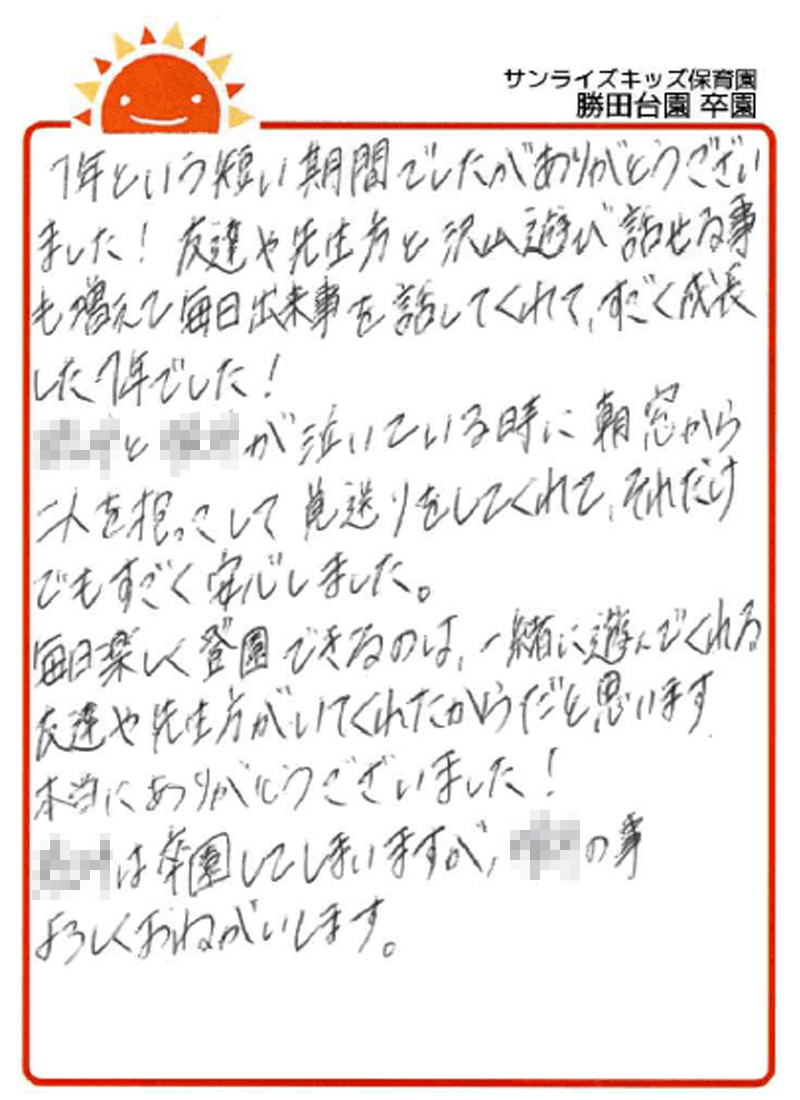 サンライズキッズ保育園
勝田台園 卒園
1年という短い期間でしたがありがとうござい
ました！ 友達や先生方と沢山遊び 話せる事
も増えて毎日出来事を話してくれて、すごく成長
した1年でした！
と が泣いている時に 朝 窓から
二人を抱っこして 見送りをしてくれて、それだけ
でもすごく安心しました。
毎日楽しく登園できるのは、一緒に遊んでくれる
友達や先生方がいてくれたからだと思います
本当にありがとうございました！
は卒園してしまいますが、 の事
よろしくおねがいします。